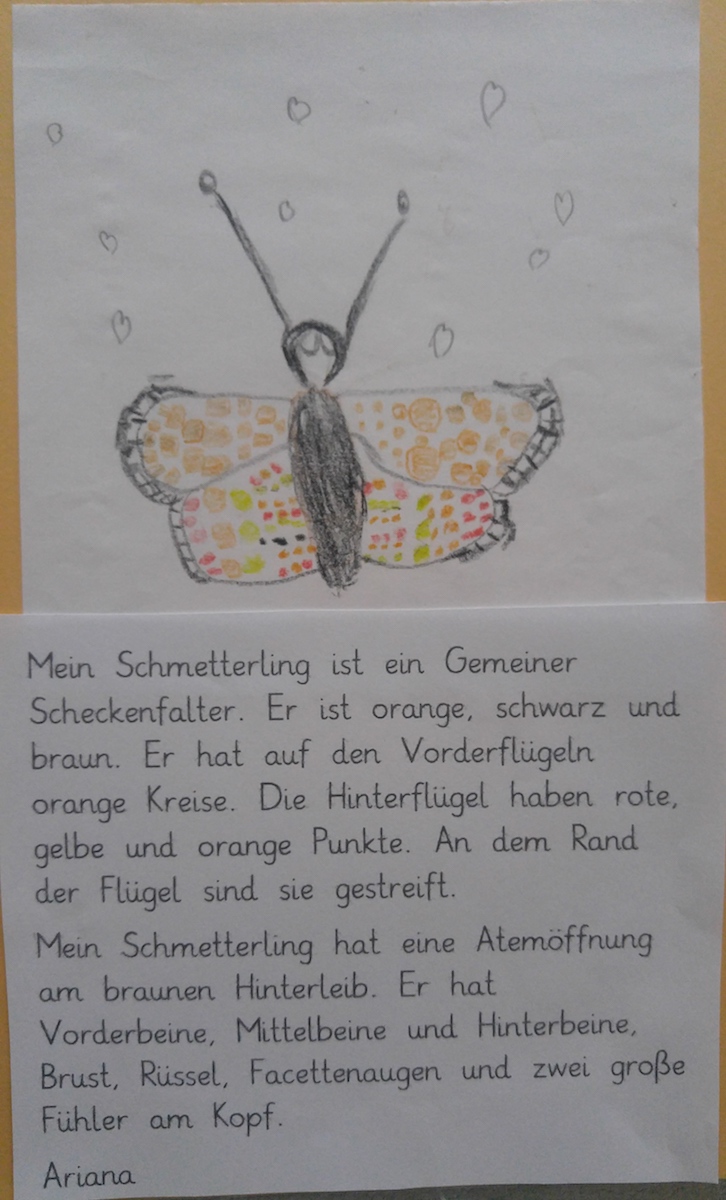 Mein Schmetterling ist ein Gemeiner
Scheckenfalter. Er ist orange, schwarz und
braun. Er hat auf den Vorderflügeln
orange Kreise. Die Hinterflügel haben rote,
gelbe und orange Punkte. An dem Rand
der Flügel sind sie gestreift.
Mein Schmetterling hat eine Atemöffnung
am braunen Hinterleib. Er hat
Vorderbeine, Mittelbeine und Hinterbeine,
Brust, Rüssel, Facettenaugen und zwei große
Fühler am Kopf.
Ariana